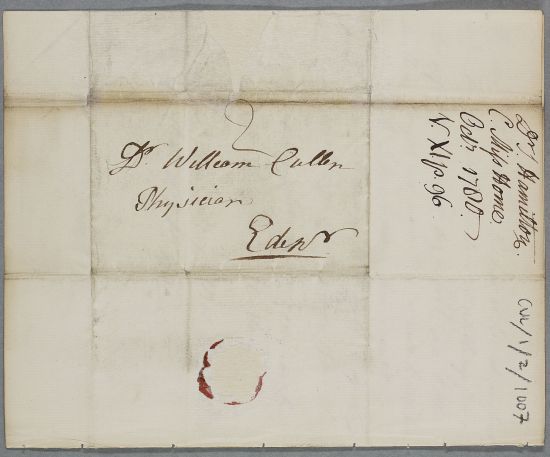 2
Dr. William Cullen
Physician
Edinr
Dr. Hamilton.
C. Miss Home,
Octr. 1780.
V. XI. p. 96.
CUL/1/2/1007